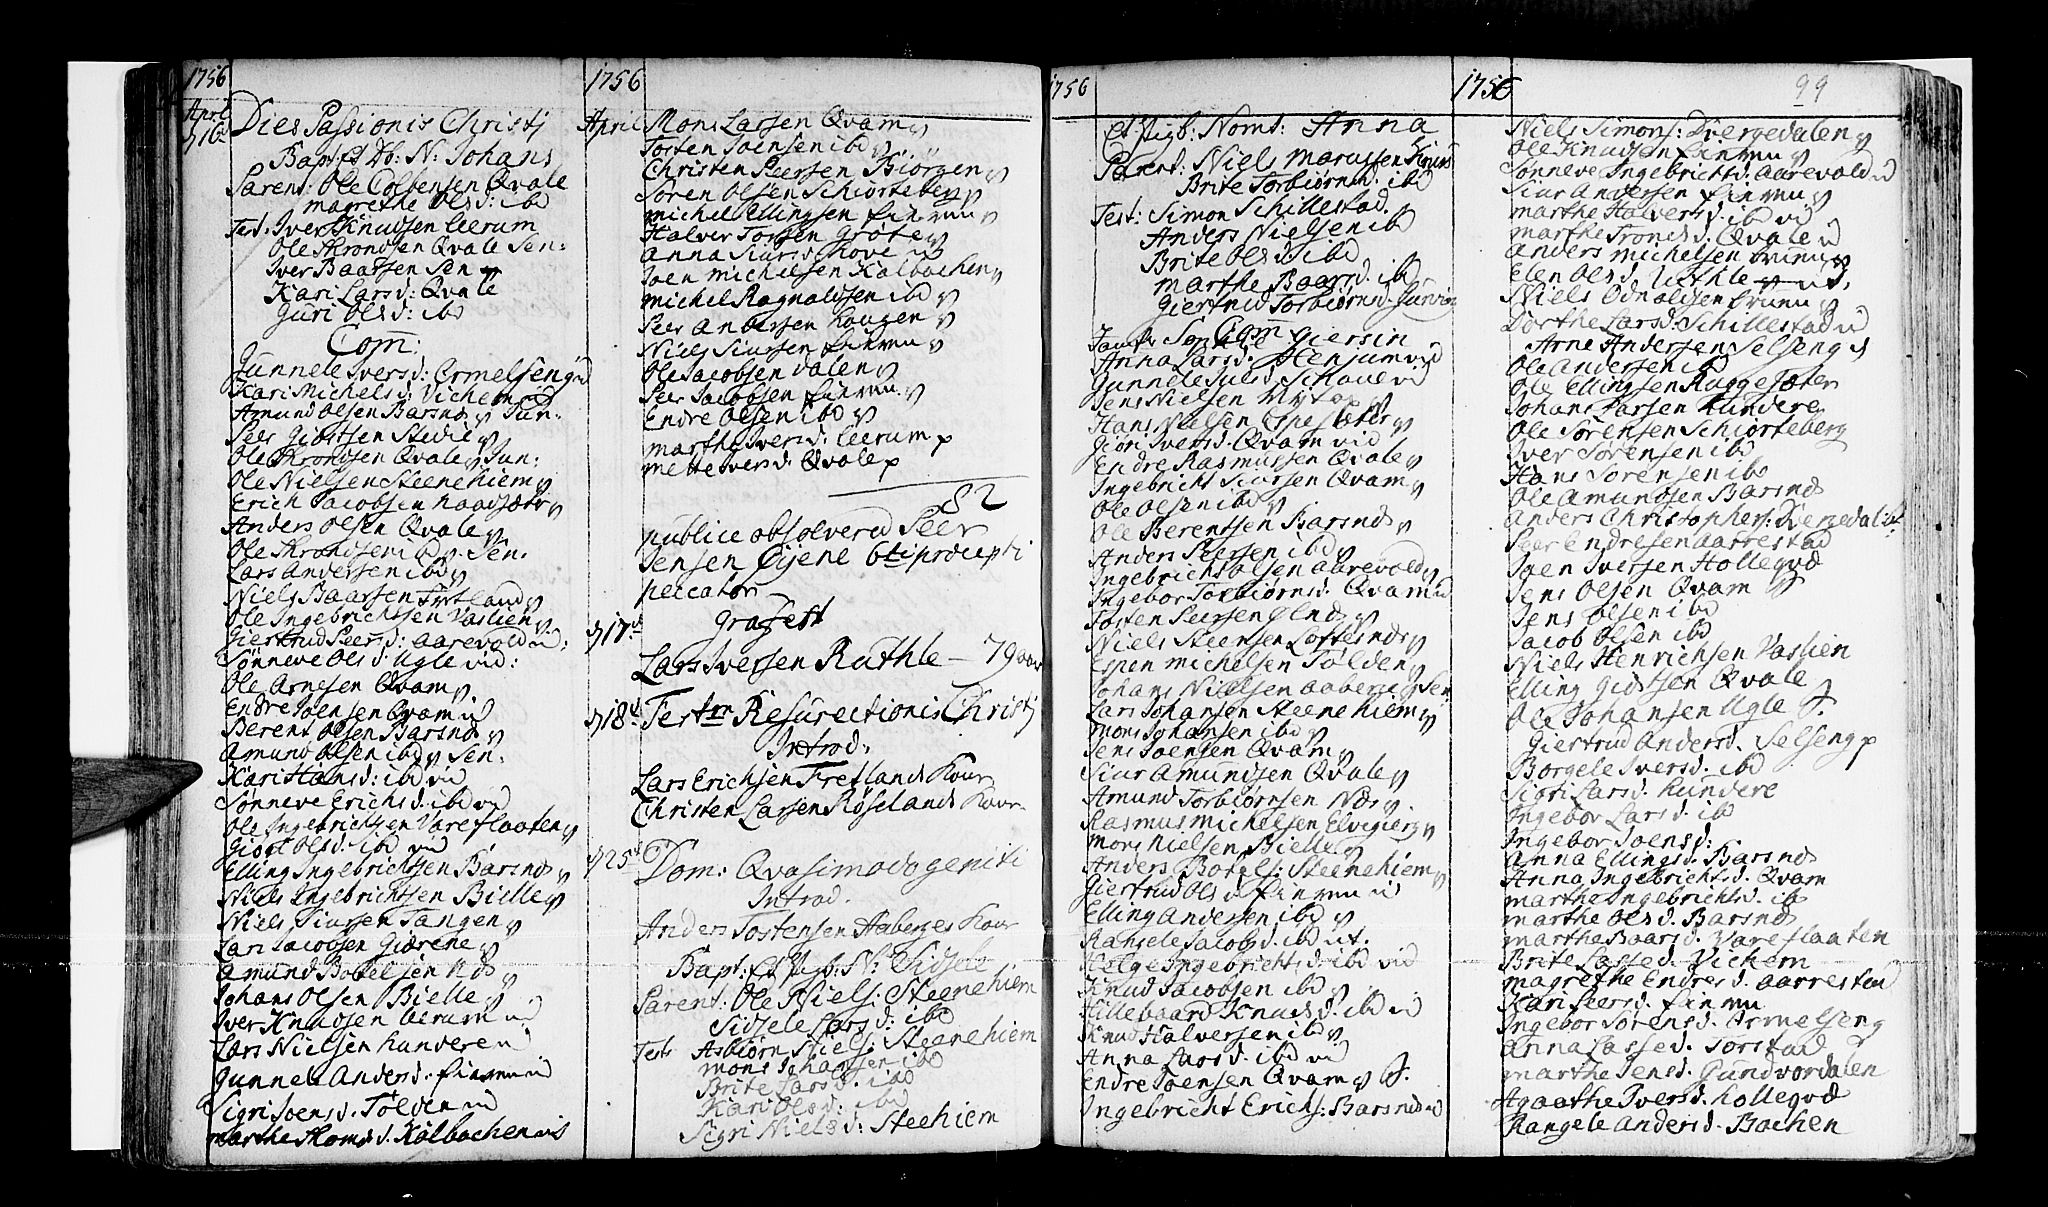 1756
April
d 16d
Dies Passionis Christj
Bapt: Et Db: N: Johans
Parent: Ole Colbensen Qvale
magrethe Olsd: ibd
Test: Iver Knudsen Leerum
Ole Throndsen Qvale Sen:
Iver Baarsen Sen
Kari Larsd: Qvale
Guri Olsd: ibd
Com:
Gunnele Iversd: Ormelseng
Kari Michelsd: Vichem
Amund Olsen Barsnds Jun:
Peer Giostsen Stedie
Ole Throndsen Qvale Jun:
Ole Nielsen Steenehiem
Erich Jacobsen
Anders Olsen Qvale
Ole Throndsen ibd Sen:
Lars Andersen ibd
Niels Baarsen Fretland
Ole Ingebrichtsen Vaslien
Giertrud Peersd: Aarevold
Sønneve Olsd. Ugle vid:
Ole Arnesen Qvam
Endre Joensen Qvam
Berent Olsen Barsnds
Amund Olsen ibd Sen:
Kari Hansd: ibd vid
Sønneve Erichsd. ibd vid
Ole Ingebrichtsen Vareflaaten
Giori Olsd: ibd vid
Elling Ingebrichtsen Barsnds
Niels Ingebrichtsen Bielle
Niels Siursen Tangen
Lars Jacobsen Giærene
Amund Botelsen Nds
Johans Olsen Bielle
Iver Knudsen Leerum
Lars Nielsen Hundere
Gunnele Andersd. Finnen
Sigri Joensd. Tølden
Marthe Thomsd. Kalbachen
1756
April
Mons Larsen Qvam
Tosten Joensen ibd
Christen Peersen Biørgen
Søren Olsen Schiorteberg
Michel Ellingsen Finnen
Halver Torsen Grøte
Anna Siursd: Hove
Joen Michelsen Kalbachen
Michel Ragnaldsen ibd
Peer Andersen Hougen
Niels Siursen Finnen
Ole Jacobsen Dalen
Peer Jacobsen Finnen
Endre Olsen ibd
Marthe Iversd: Leerum p
Mette Iversd. Qvale p
82
publice absolvered Peer
Jensen Øijene 6ti præcepti
peccator
d 17d
Grafæst
Lars Iversen Ruthle - 79 aar
d 18d
Festum Resurectionis Christj
Introd:
Lars Erichsen Fretlands Kour
Christen Larsen Røselands Kour
d 25d
Dom: Qvasimodogeniti
Introd.
Anders Tostensen Aaberges Kour
Bapt: Et Pigb: N: Sidsele
Parent: Ole Niels: Steenehiem
Sidsele Larsd: ibd
Test: Asbiørn Niels: Steenehiem
Mons Johansen ibd
Brite Larsd. ibd
Kari Olsd: ibd
Sigri Nielsd: Steehiem
1756
Et Pigb: Nomt: Anna
Parent: Niels Marcussen
Brite Torbiørnsd. ibd
Test: Simon Schillestad.
Anders Nielsen ibd
Brite Olsd: ibd
Marthe Baarsd. ibd
Giertrud Torbiørnsd.
Com
Anna Larsd. Stenjum vid
Gunnele Julsd Schaue vid
Jens Nielsen Nytop
Hans Nielsen Espesæter
Giori Iversd. Qvam vid
Endre Rasmussen Qvale
Ingebricht Siursen Qvam
Ole Olsen ibd
Ole Berentsen Barsnds
Anders Peersen ibd
Ingebricht Olsen Aarevold
Ingebor Torbiørnsd. Qvam
Tosten Peersen Ølnds
Niels Steensen Loftesnds
Espen Michelsen Tølden
Johans Nielsen Aaberge Sen
Lars Johansen Steenehiem
Mons Johansen ibd
Jens Joensen Qvam
Siur Amundsen Qvale
Amund Torbiørnsen Nds
Rasmus Michelsen Elvegierg
Mons Nielsen Bielle
Anders Botels: Steenehiem
Giertrud Olsd Finnen
Elling Andersen ibd
Rangele Jacobsd. ibd
Helge Ingebrichtsd. ibd vid
Knud Jacobsen ibd
Hillebaard Knudsd. ibd
Knud Halversen ibd
Anna Larsd. ibd vid
Endre Joensen Qvam
Ingebricht Erichs: Barsnds
1756
99
Niels Simons: Dvergedalen
Ole Knudsen Finnen
Sønneve Ingebrichtsd. Aarevold
Siur Andersen Finnen
Marthe Halversd. ibd vid
Marthe Tronsd. Qvale
Anders Michelsen Finnen
Elen Olsd. Ruthle
Niels Odnaldsen Finnen
Dorthe Larsd. Schillestad
Arne Andersen Selseng
Ole Andersen ibd
Ole Ellingsen Ruggesæter
Johans Larsen Hundere
Ole Sørensen Schiorteberg
Iver Sørensen ibd
Hans Sørensen ibd
Ole Amundsen Barsnds
Anders Christophers: Dvergedalen
Peer Endresen Aarrestad
Joen Iversen Holleqvd
Jens Olsen Qvam
Jens Olsen ibd
Jacob Olsen ibd
Niels Henrichsen Vaslien
Elling Giostsen Qvale
Ole Johansen Ugle
Giertrud Andersd. Selseng p
Borgele Iversd. ibd
Sigri Larsd. Hundere
Ingebor Larsd. ibd
Ingebor Joensd:
Anna Ellingsd. Barsnds
Anna Ingebrichtsd. Qvam
Marthe Ingebrichtsd. ib
Marthe Olsd. Barsnds
Marthe Baarsd. Vareflaaten
Brite Lassed. Vichem
Magrethe Endresd. Aarrestad
Kari Peersd. Finnen
Ingebor Sørensd. Armelseng
Anna Lassed. Torstad
Marthe Jensd. Gundvordalen
Agaathe Iversd. Holleqvd
Rangele Andersd. Bachen